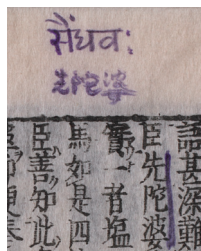 सैंधवः
先陀婆
語甚深難
臣先陀婆
實一者塩
馬如是四
臣善知此